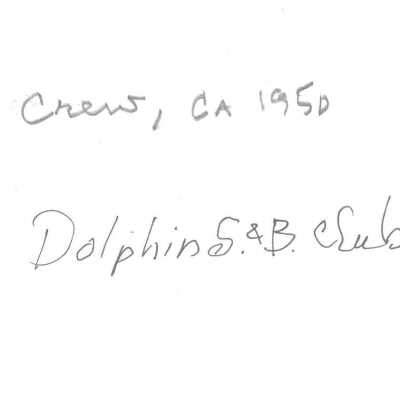 Crew, CA 1950
Dolphin S. & B. Club